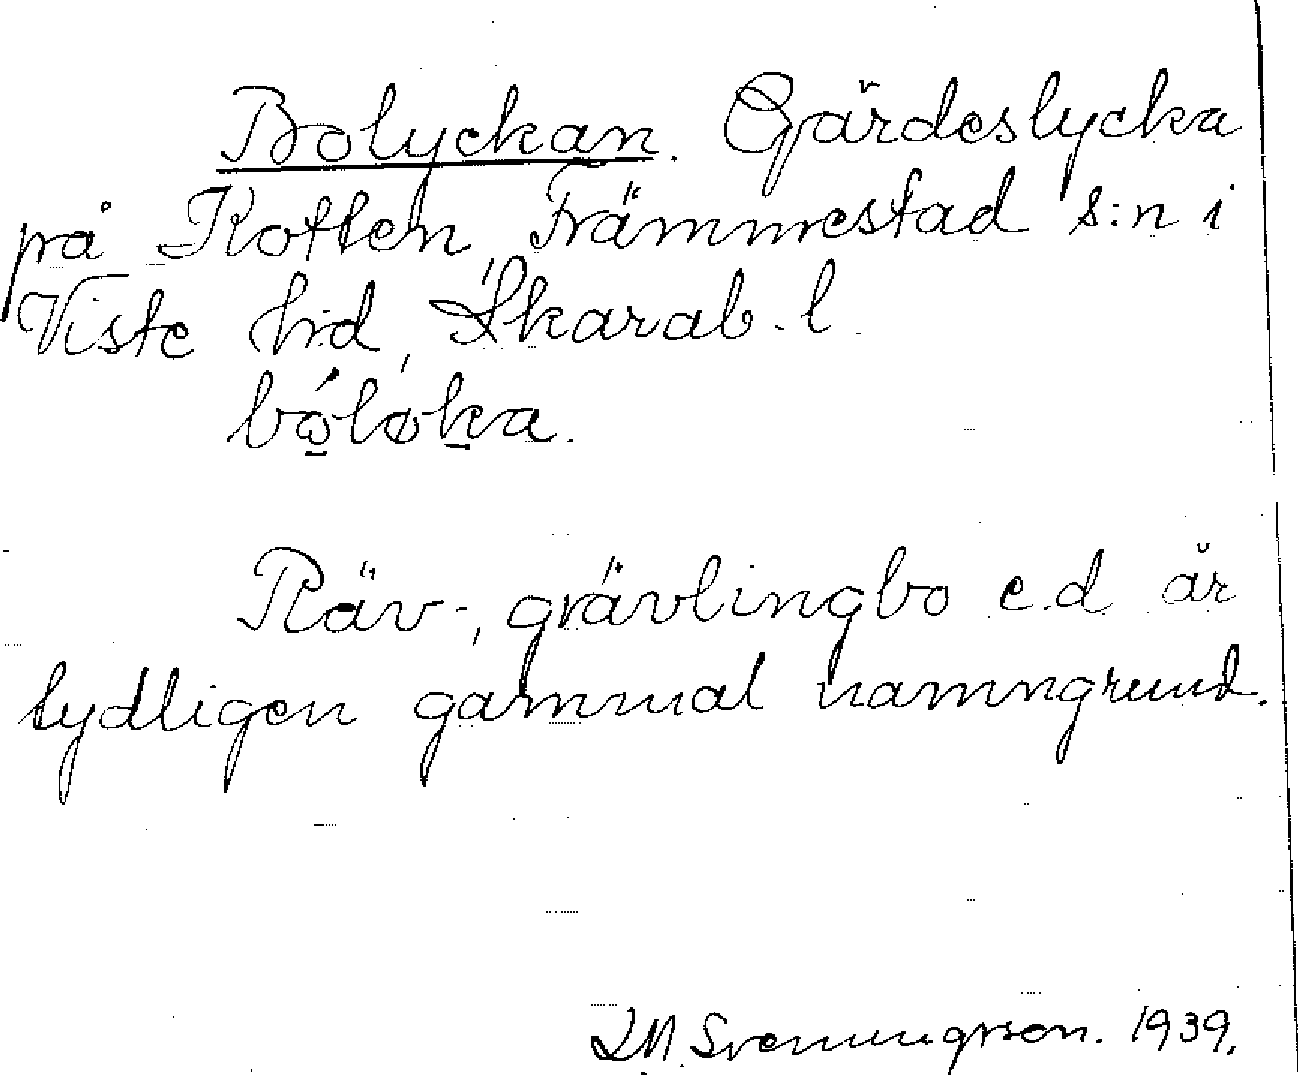 Bolyckan. Gärdeslycka
på Koften, Främmestad s:n i
Viste hd, Skarab. l.
bo̲´løk̲a.
Räv-, grävlingbo e.d är
tydligen gammal namngrund.
Svenungsson. 1939.